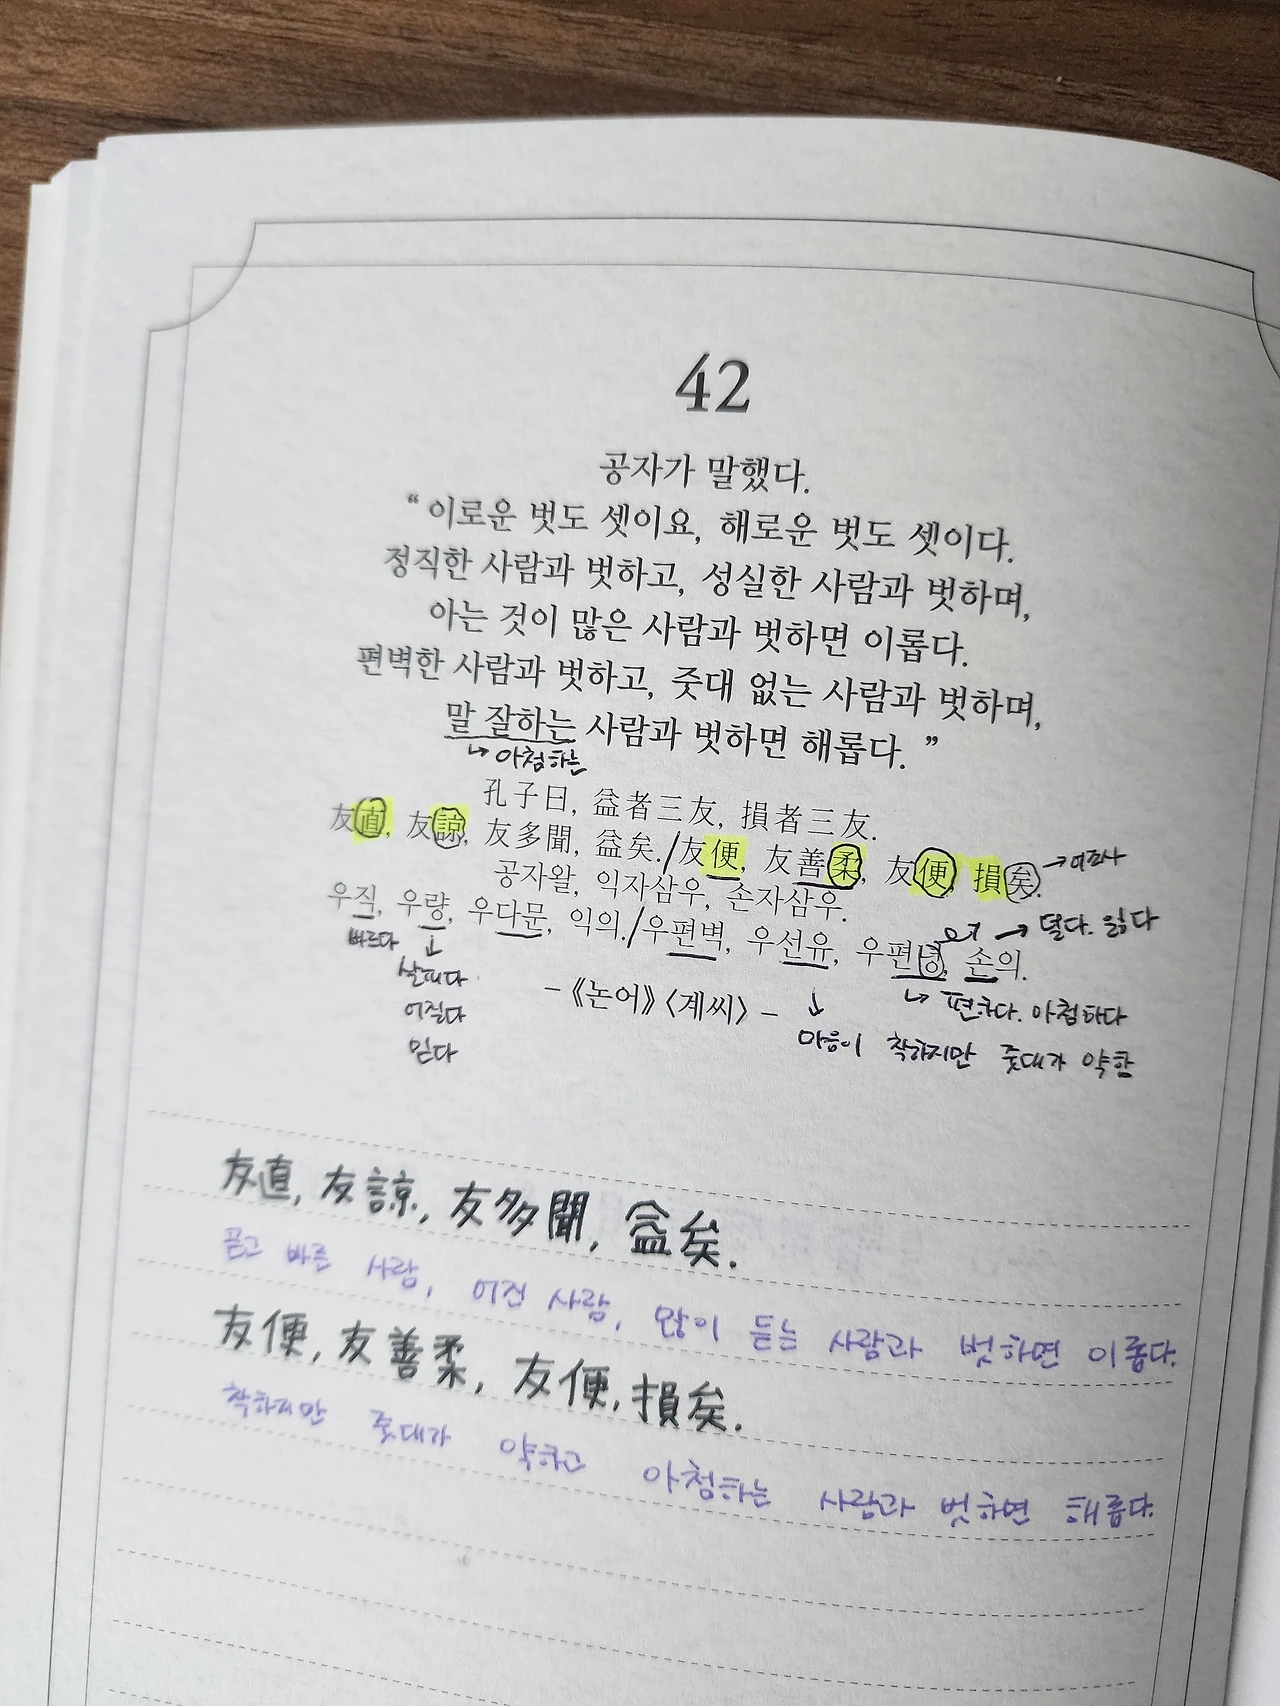 42
공자가 말했다.
“이로운 벗도 셋이요, 해로운 벗도 셋이다.
정직한 사람과 벗하고, 성실한 사람과 벗하며,
아는 것이 많은 사람과 벗하면 이롭다.
편벽한 사람과 벗하고, 줏대 없는 사람과 벗하며,
말 잘하는 사람과 벗하면 해롭다.”
↳ 아첨하는
孔子曰, 益者三友, 損者三友.
友直, 友諒, 友多聞, 益矣./友便, 友善柔, 友便, 損矣. → 어조사
공자왈, 익자삼우, 손자삼우.
우직, 우량, 우다문, 익의./우편벽, 우선유, 우편녕, 손의.
→ 덜다. 잃다
바르다
↓
살피다
어질다
믿다
-《논어》〈계씨〉-
↳ 편하다. 아첨하다
↓
마음이 착하지만 줏대가 약함
友直, 友諒, 友多聞, 益矣.
곧고 바른 사람, 어진 사람, 많이 듣는 사람과 벗하면 이롭다.
友便, 友善柔, 友便, 損矣.
착하지만 줏대가 약하고 아첨하는 사람과 벗하면 해롭다.